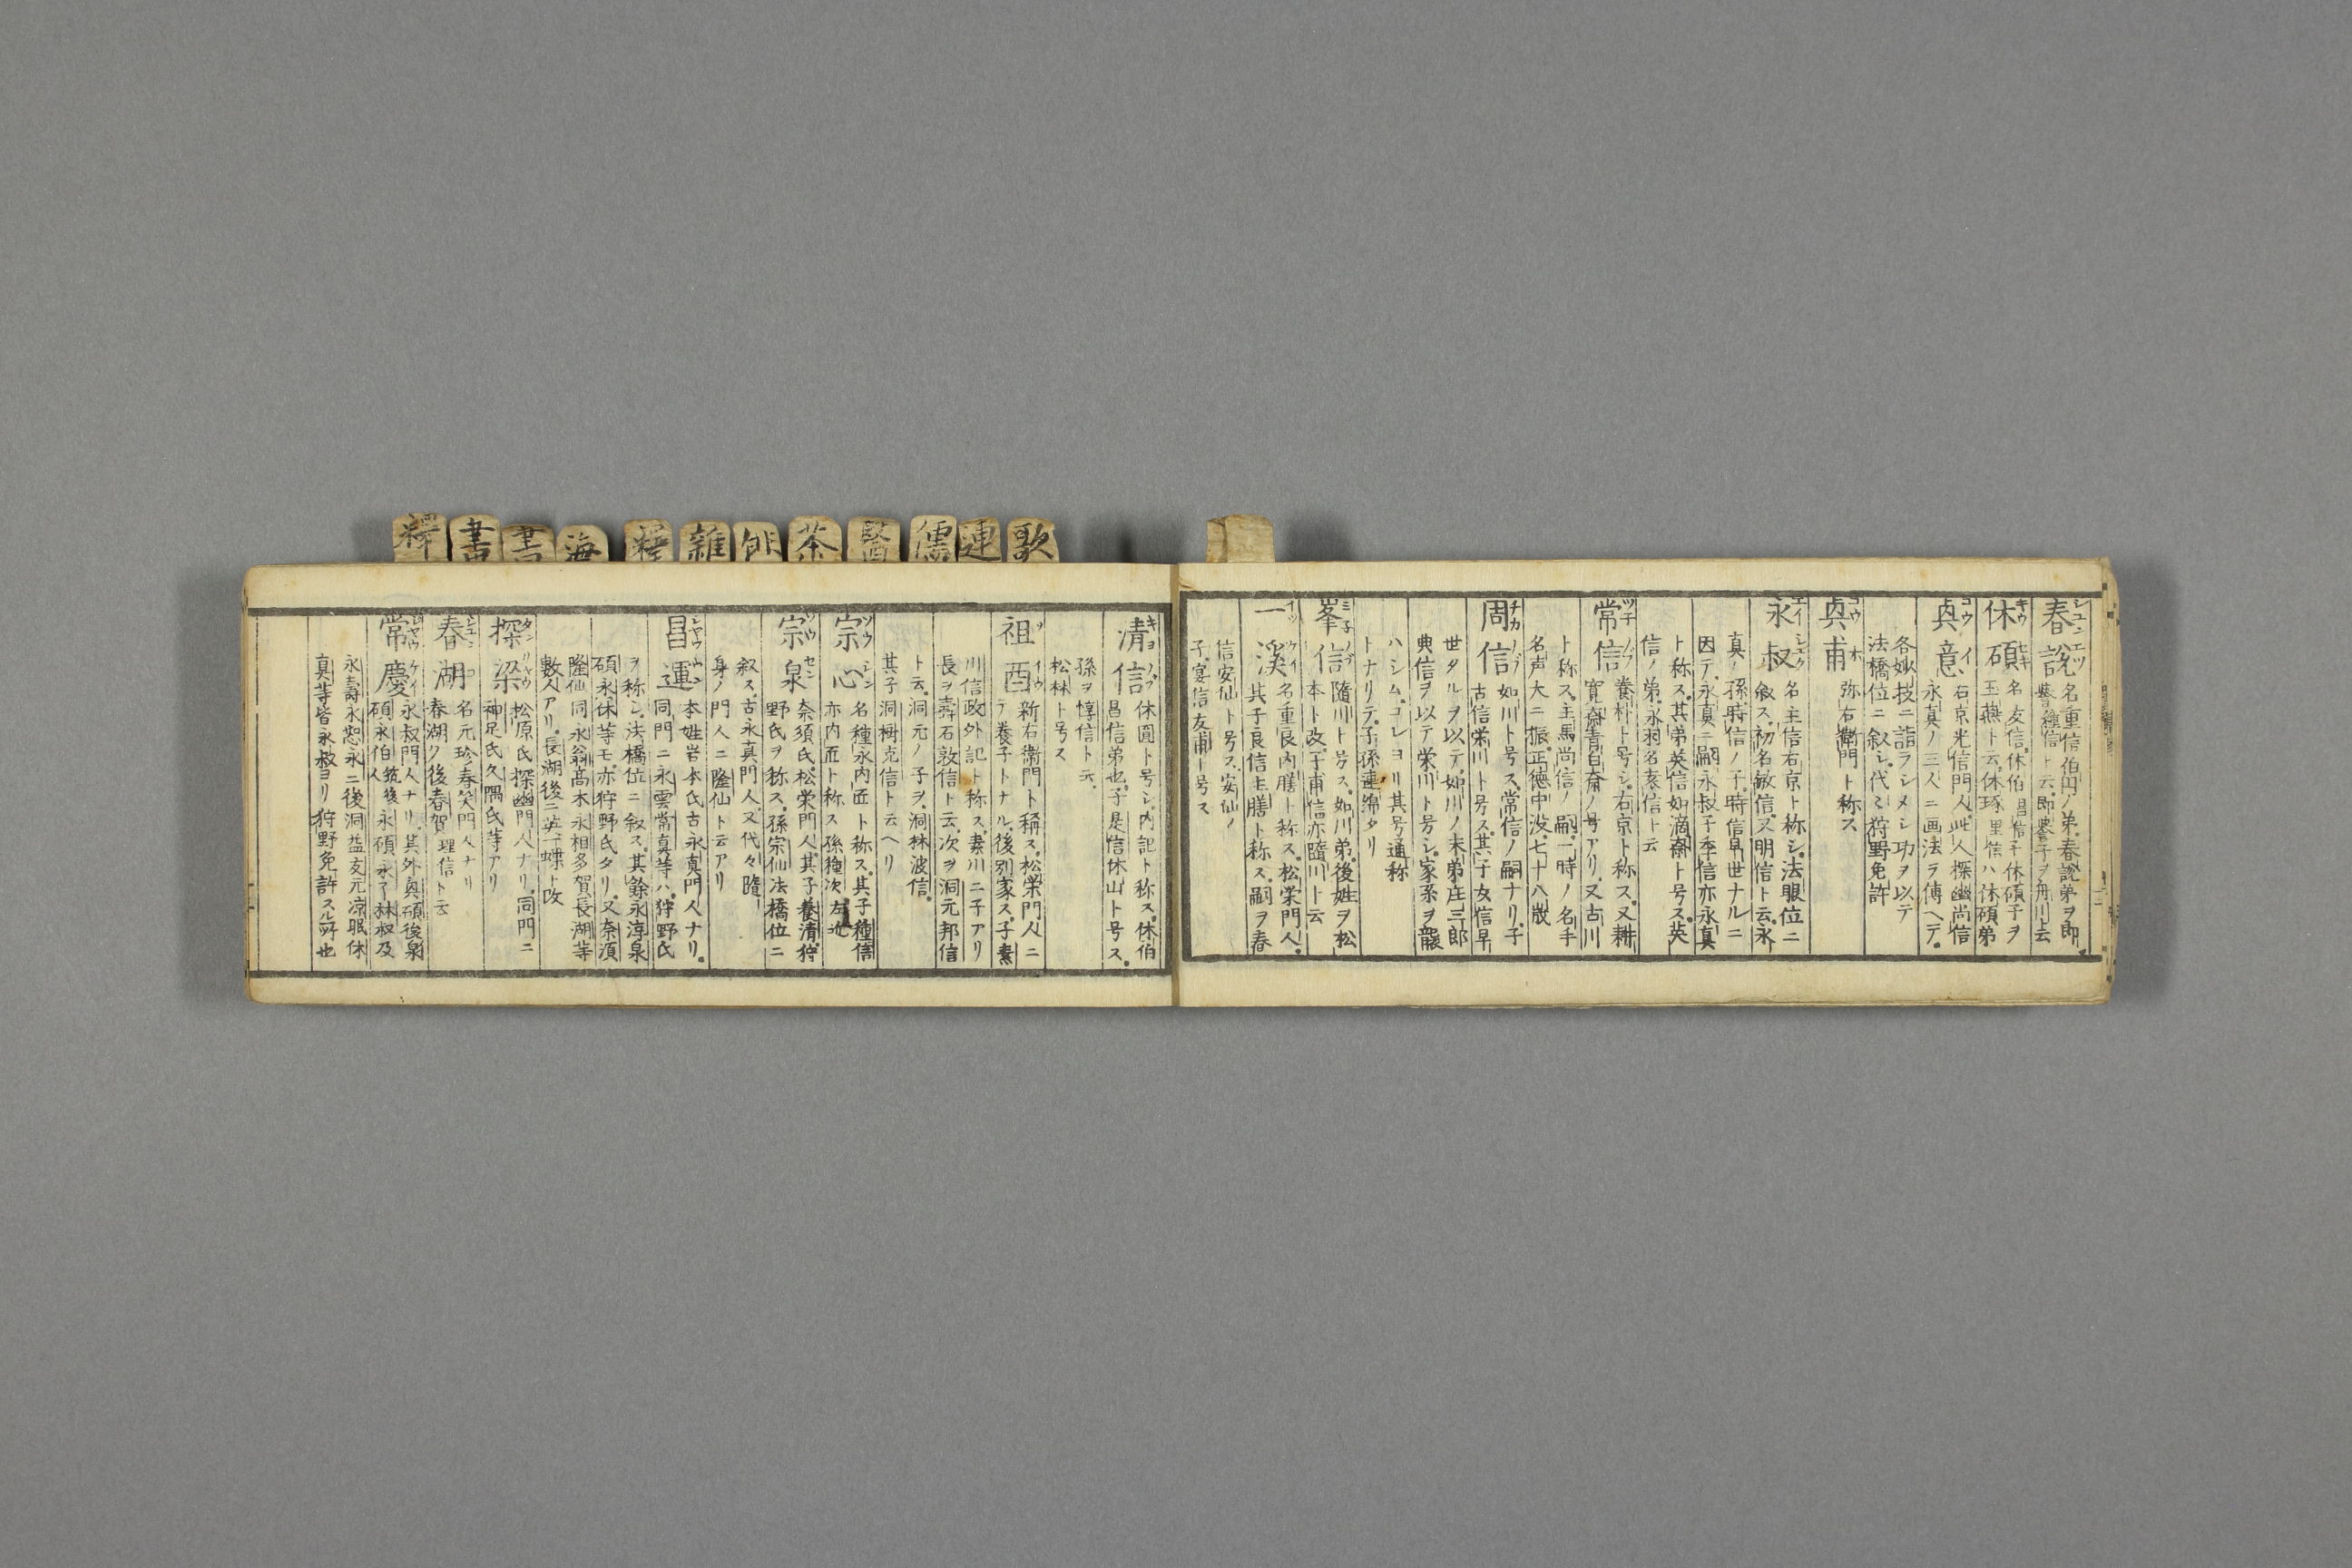 歌
連
儒
醫
茶
俳
雜
釋
海
書
畫
釋
春説 名重信伯円ノ弟春説弟ヲ即
休碩 名友信休伯昌信子休碩子ヲ
玉燕ト云休琢里信ハ休碩弟
興意 右京光信門人此人探幽尚信
永真ノ三人ニ画法ヲ傳ヘテ
各妙技ニ詣ラシメシ功ヲ以テ
法橋位ニ叙シ代々狩野免許
興甫 弥右衛門ト称ス
永叔 名主信右京ト称シ法眼位ニ
叙ス初名敏信又明信ト云永
真ノ孫時信ノ子時信早世ナルニ
因テ永真ニ嗣永叔子季信亦永真
ト称ス其弟英信如滴齋ト号ス英
信ノ弟永羽名泰信ト云
常信 養朴ト号シ右京ト称ス又耕
寛齋青白齋ノ号アリ又古川
ト称ス主馬尚信ノ嗣一時ノ名手
名声大ニ振正徳中没七十八歳
周信 如川ト号ス常信ノ嗣ナリ子
古信栄川ト号ス其子女信早
世タルヲ以テ如川ノ末弟庄三郎
典信ヲ以テ栄川ト号シ家系ヲ襲
ハシムコレヨリ其号通称
トナリテ子孫連綿タリ
峯信 隨川ト号ス如川弟後姓ヲ松
本ト改ム子甫信亦隨川ト云
一溪 名重良内膳ト称ス松栄門人
其子良信主膳ト称ス嗣ヲ春
信安仙ト号ス安仙ノ
子宴信友甫ト号ス
清信 休圓ト号シ内記ト称ス休伯
昌信弟也子是信休山ト号ス
孫ヲ惇信ト云
松林ト号ス
祖酉 新右衛門ト稱ス松栄門人ニ
テ養子トナル後別家ス子素
川信政外記ト称ス素川ニ子アリ
長ヲ壽石敦信ト云次ヲ洞元邦信
ト云洞元ノ子ヲ洞林波信
其子洞栂克信ト云ヘリ
宗心 名種永内匠ト称ス其子種信
亦内匠ト称ス孫種次左近
宗泉 奈須氏松栄門人其子養清狩
野氏ヲ称ス孫宗仙法橋位ニ
叙ス古永真門人又代々隨
身ノ門人ニ隆仙ト云アリ
昌運 本姓岩本氏古永真門人ナリ
同門ニ永雲常真等ハ狩野氏
ヲ称シ法橋位ニ叙ス其餘永淳泉
碩永休等モ亦狩野氏タリ又奈須
隆仙同永翁髙木永相多賀長湖等
數人アリ長湖後ニ英一蝶ト改
探梁 松原氏探幽門人ナリ同門ニ
神足氏久隅氏等アリ
春湖 名元珍春笑門人ナリ
春湖ノ後春賀理信ト云
常慶 永叔門人ナリ其外興碩後泉
碩永伯筑後人永碩永了林叔及
永壽永恕永ニ後洞益友元凉眠休
真等皆永叔ヨリ狩野免許スル所也